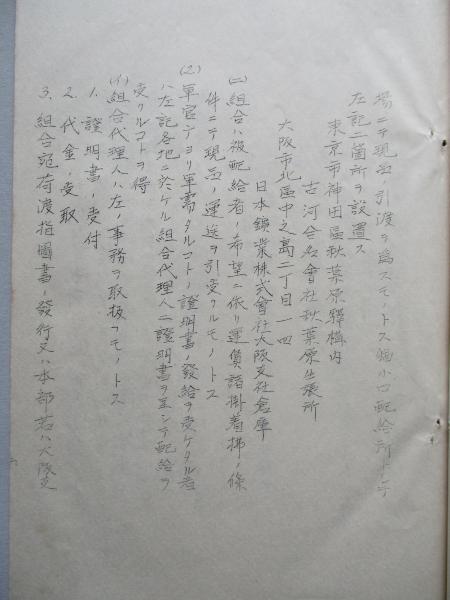 場ニテ現品ノ引渡ヲ為スモノトス但小口配給所トシテ
左記二箇所ヲ設置ス
東京市神田區秋葉原驛構内
古河合名會社秋葉原出張所
大阪市北區中之島二丁目一四
日本鑛業株式會社大阪支社倉庫
(二)組合ハ被配給者ノ希望ニ依リ運賃諸掛着拂ノ條
件ニテ現品ノ運送ヲ引受クルモノトス
(2)軍官ヨリ軍需タルコトノ證明書ノ發給ヲ受ケタル者
ハ左記各地ニ於ケル組合代理人ニ證明書ヲ呈シテ配給ヲ
受クルコトヲ得
(イ)組合代理人ハ左ノ事務ヲ取扱フモノトス
1. 證明書ノ受付
2. 代金ノ受取
3. 組合宛荷渡指圖書ノ發行又ハ本部若ハ大阪支